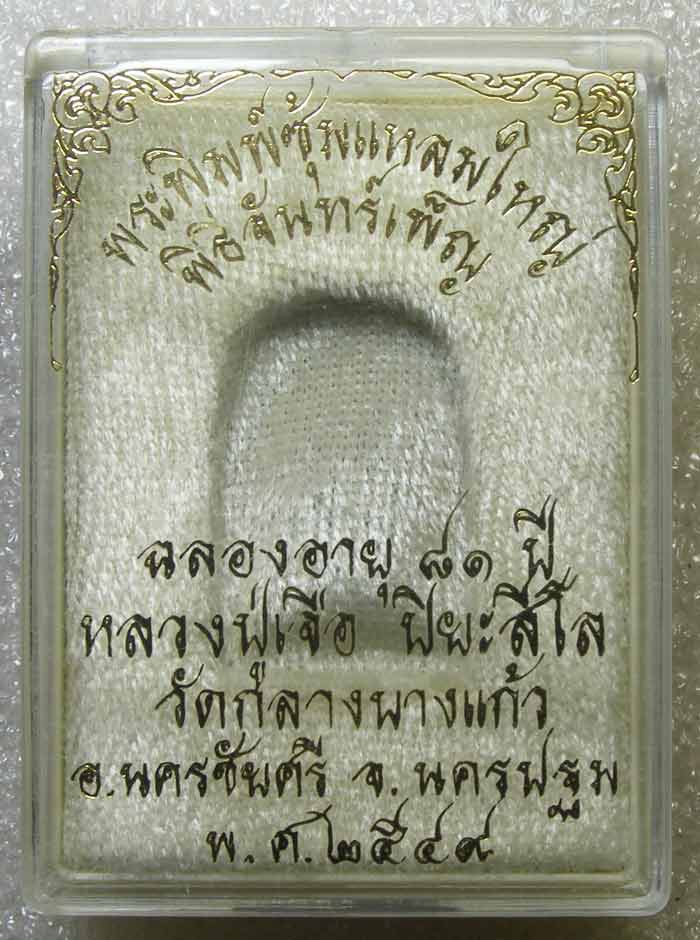 พระพิมพ์ซุ้มแหลมใหญ่
พิธีจันทร์เพ็ญ
ฉลองอายุ ๘๑ ปี
หลวงปู่เจือ ปิยะสีโล
วัดกลางบางแก้ว
อ.นครชัยศรี จ.นครปฐม
พ.ศ.๒๕๔๙